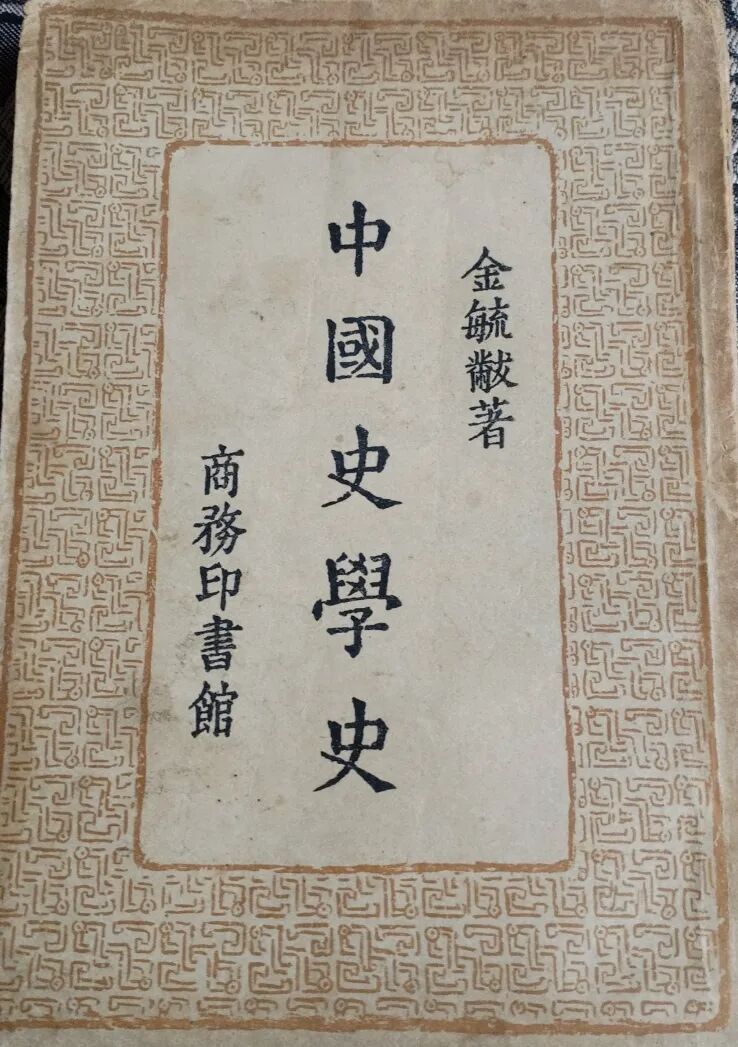 金毓黻著
中國史學史
商務印書館